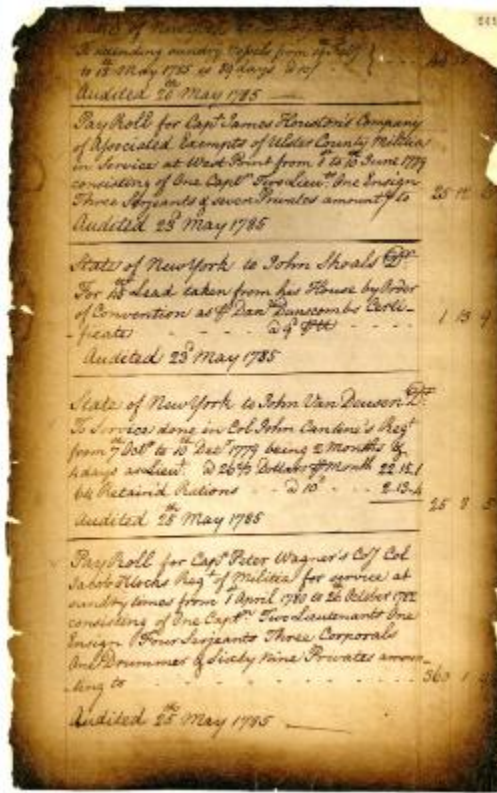 State of New York
attending sundry Vessels from 19th Feby
to 18th May 1785 is 89 days @ 10/
Audited 20th May 1785
Pay Roll for Capt James Houston's Company
of Associated Exempts of Ulster County Militia
in Service at West Point from 1st to 10th June 1779
consisting of One Captn Two Lieuts One Ensign
Three Serjeants & seven Privates amountg to 25 12
Audited 23d May 1785
State of New York to John Shoals Dr
For lead taken from his House by Order
of Convention as ⅌ Danl Dunscombs Certi- 1 13 9
ficate @ 9d ⅌ lb
Audited 23d May 1785
State of New York to John Van Deusen Dr
To Service done in Col John Cantine's Regt
from 7th Octr to 10th Decr 1779 being 2 Months &
4 days as Lieut. @ 26⅔ Dollars ⅌ Month 22.15.1
64 Retain'd Rations @ 10d 2.13.4
25 8 5
Audited 25th May 1785
Pay Roll for Capt Peter Wagner's Coy Col
Jacob Klocks Regt of Militia for service at
sundry times from 1st April 1780 to 26th October 1782
consisting of One Captn Two Lieutenants One
Ensign Four Serjeants Three Corporals
One Drummer & Sixty Nine Privates amoun-
ting to 360 1
Audited 25th May 1785